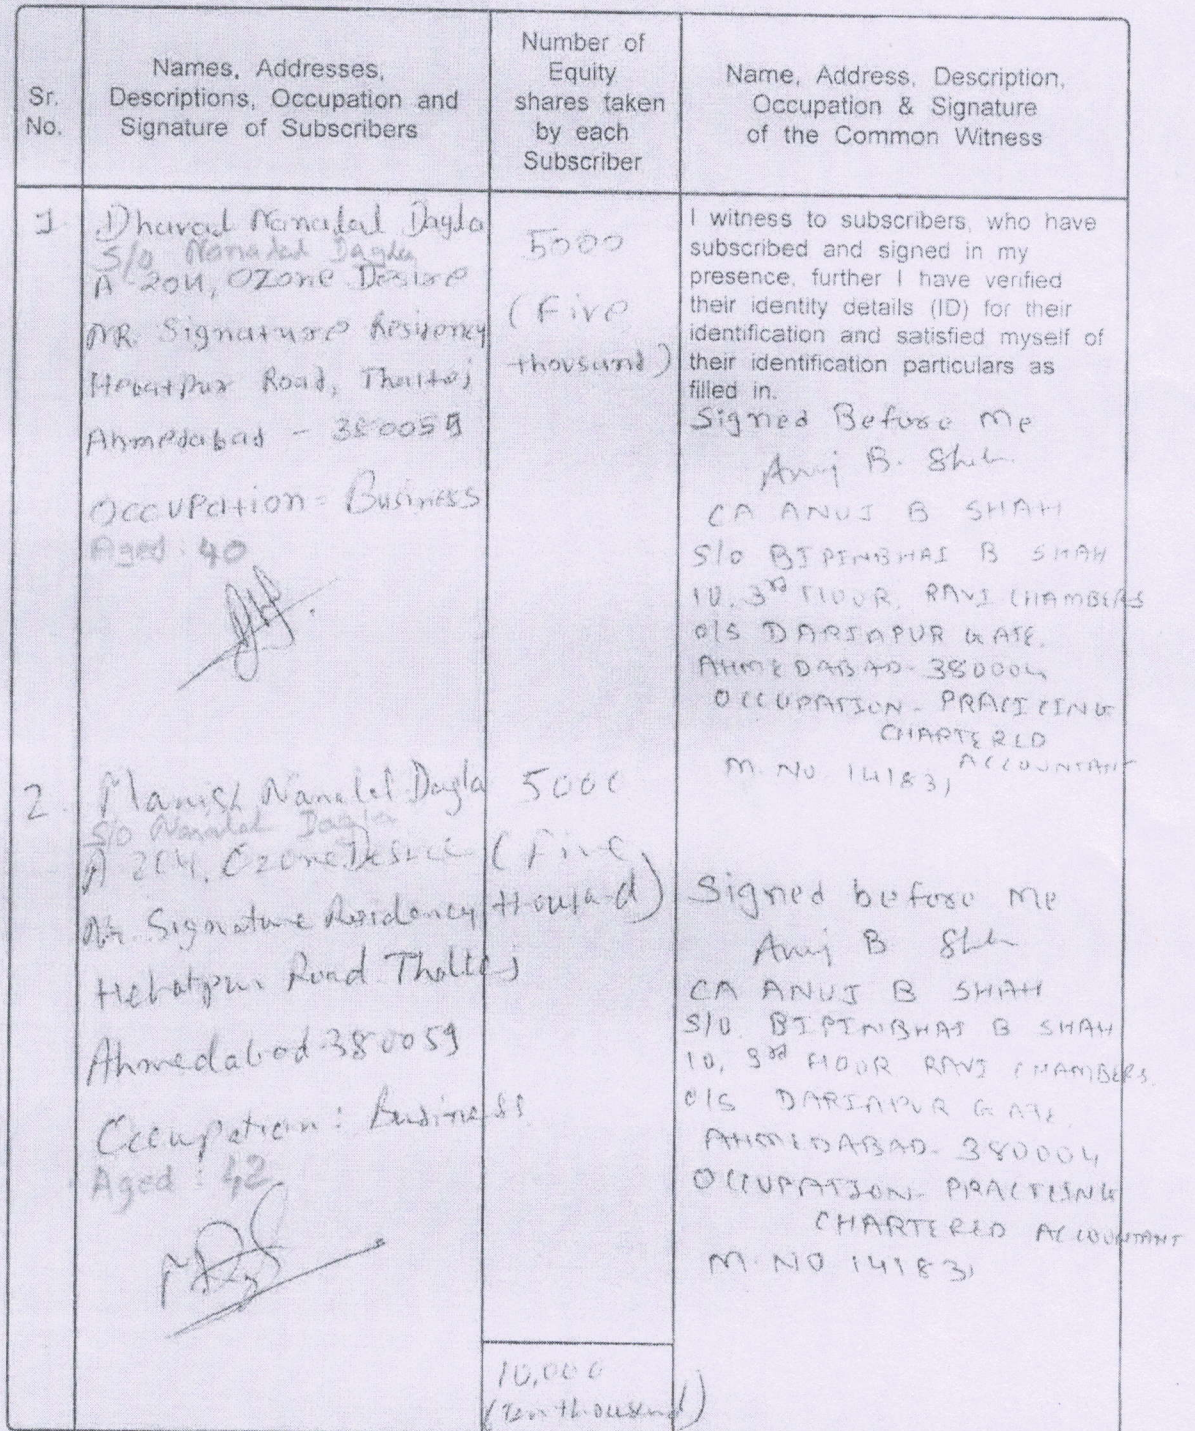 Sr.
No.
Names, Addresses,
Descriptions, Occupation and
Signature of Subscribers
Number of
Equity
shares taken
by each
Subscriber
Name, Address, Description,
Occupation & Signature
of the Common Witness
1
Dhaval Nanalal Dagla
S/o Nanalal Dagla
A-204, Ozone Desire
NR. Signature Residency
Hebatpur Road, Thaltej
Ahmedabad - 380059
Occupation - Business
Aged : 40
5000
(Five
thousand)
I witness to subscribers, who have
subscribed and signed in my
presence, further I have verified
their identity details (ID) for their
identification and satisfied myself of
their identification particulars as
filled in.
Signed Before Me
Anuj B. Shah
CA ANUJ B SHAH
S/o BIPINBHAI B SHAH
10, 3rd FLOOR, RAVI CHAMBERS
O/S DARIAPUR GATE.
AHMEDABAD-380004
OCCUPATION - PRACTICING
CHARTERED
ACCOUNTANT
M. NO 141831
2.
Manish Nanalal Dagla
S/o Nanalal Dagla
A 204, Ozone Desire
Nr. Signature Residency
Hebatpur Road Thaltej
Ahmedabad-380059
Occupation : Business
Aged : 42
5000
(Five
thousand)
Signed before me
Anuj B Shah
CA ANUJ B SHAH
S/O. BIPINBHAI B SHAH
10, 3rd FLOOR RAVI CHAMBERS.
O/S DARIAPUR GATE.
AHMEDABAD- 380004
OCCUPATION- PRACTICING
CHARTERED ACCOUNTANT
M. NO 141831
10,000
(Ten thousand)